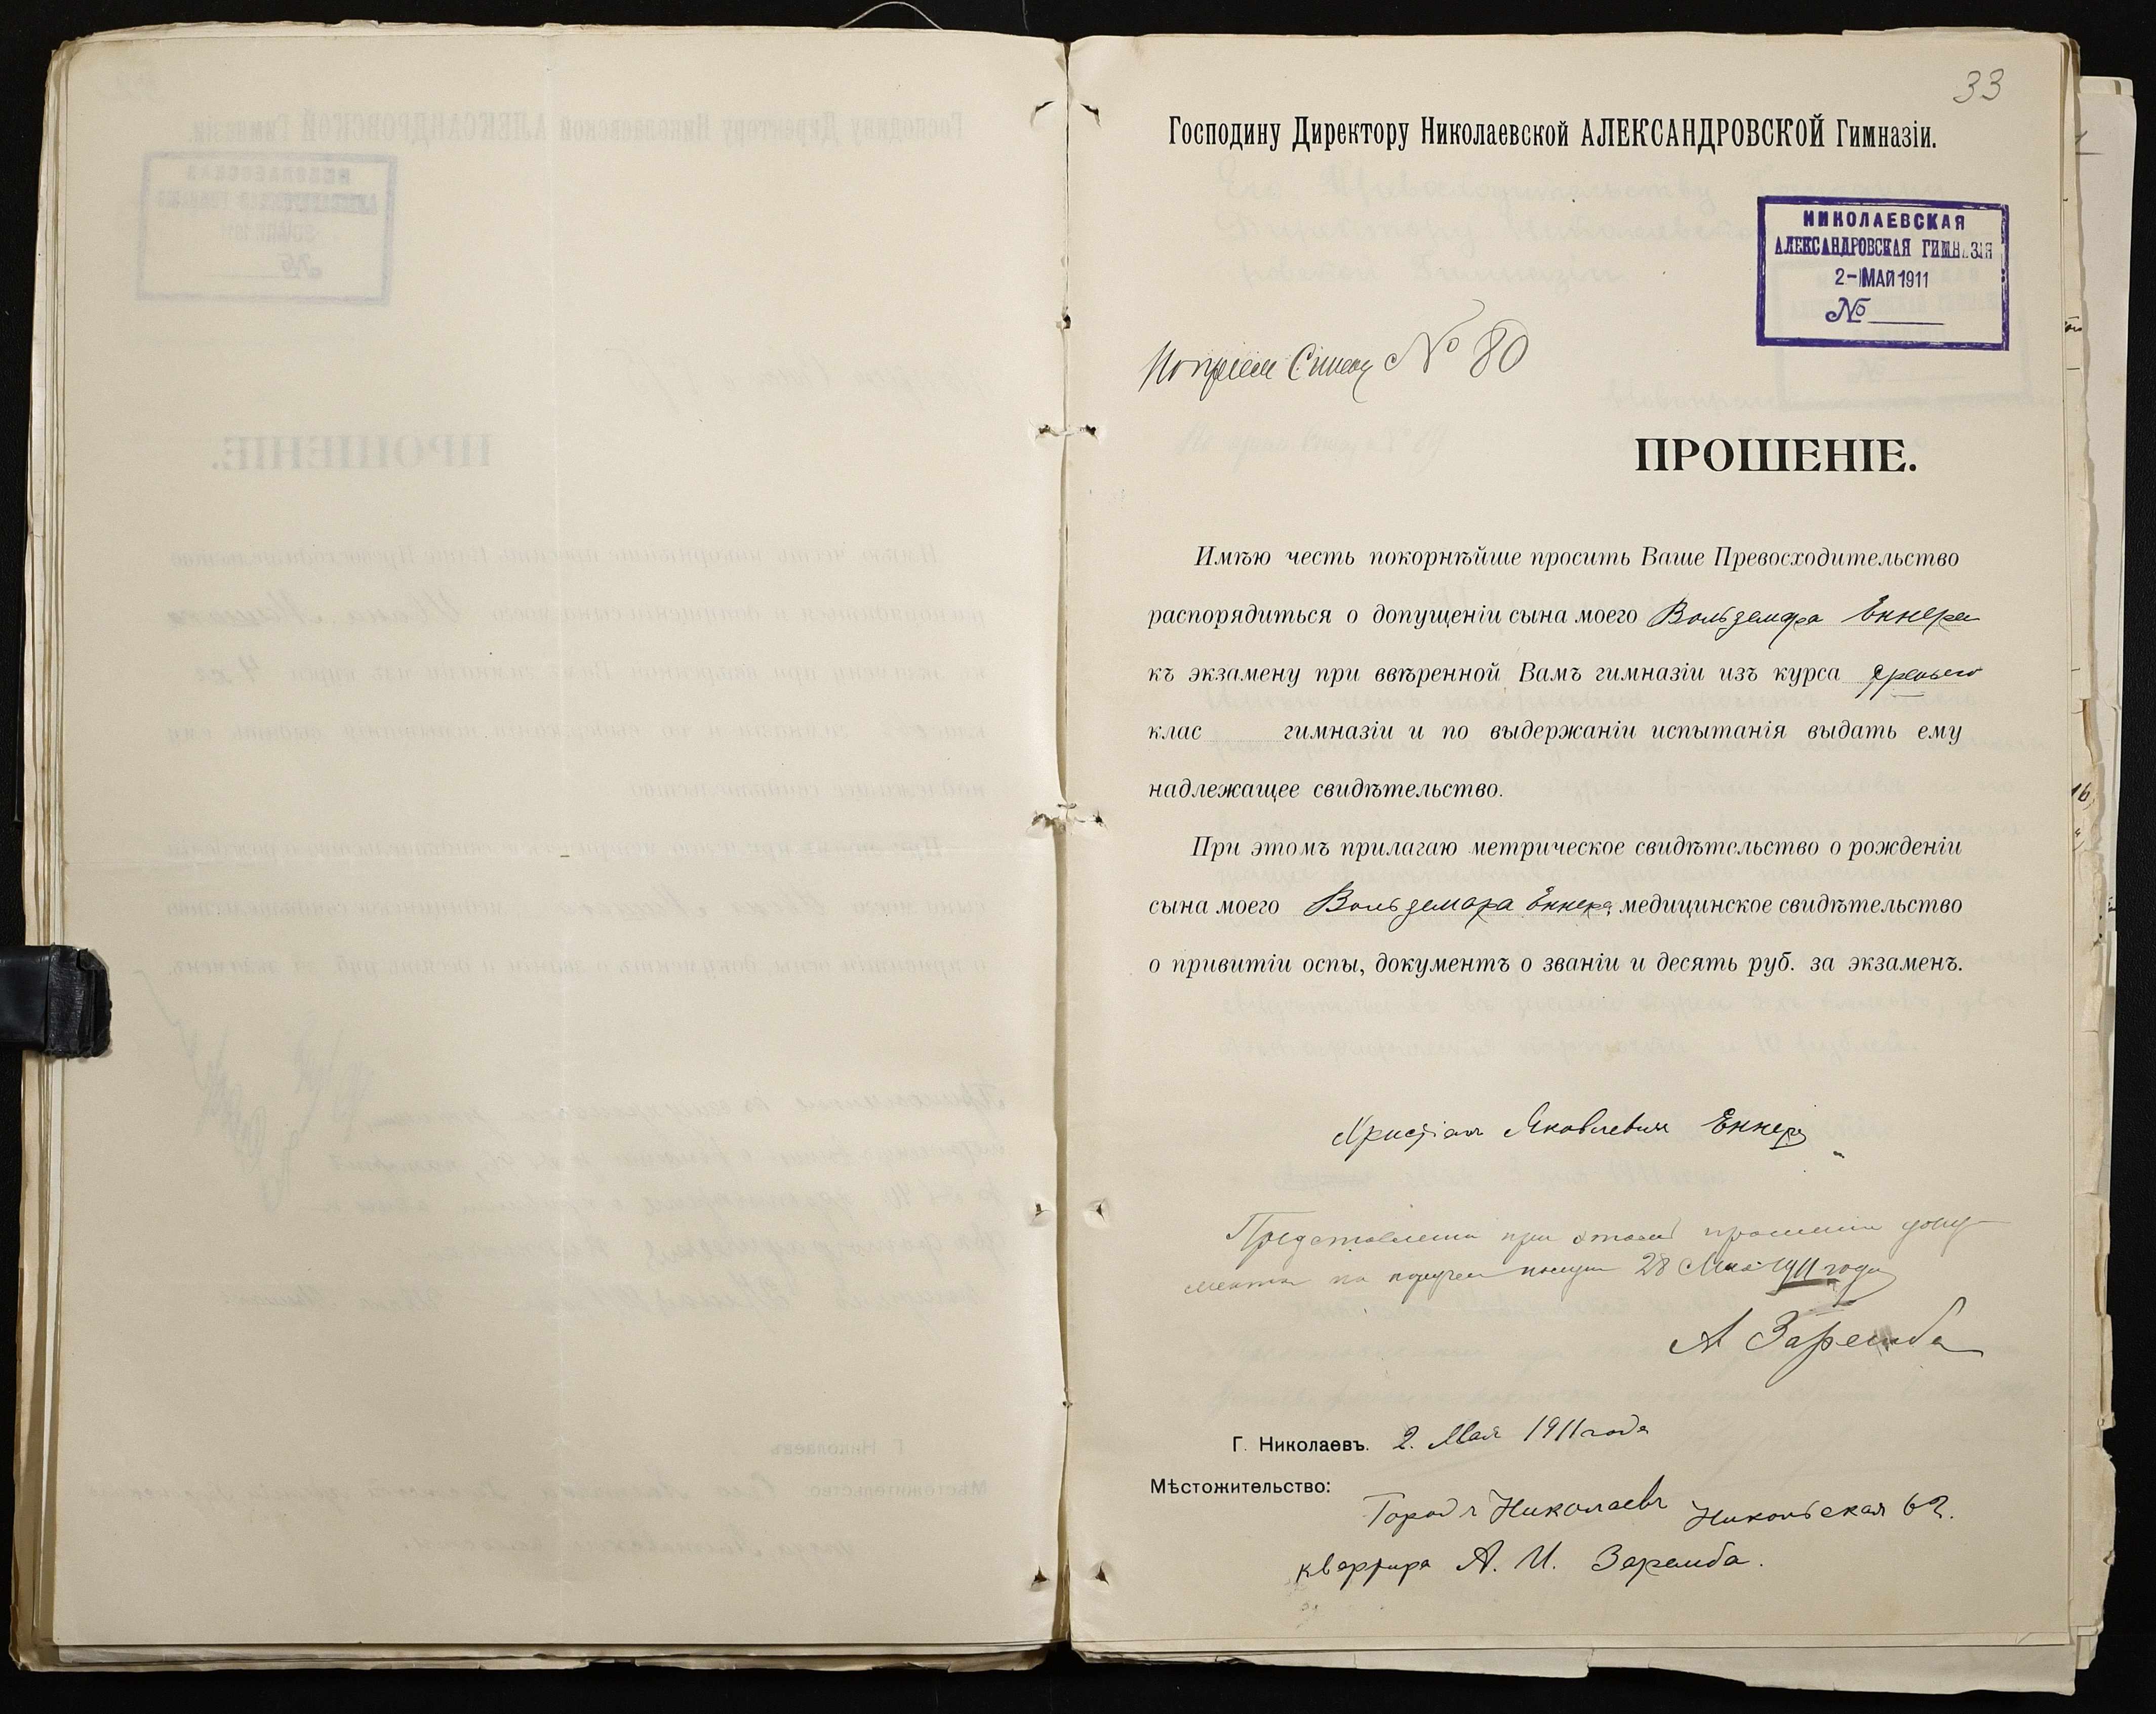 33
Господину Директору Николаевской АЛЕКСАНДРОВСКОЙ Гимназіи.
НИКОЛАЕВСКАЯ
АЛЕКСАНДРОВСКАЯ ГИМНАЗІЯ
2-МАЙ 1911
№
№ 80
ПРОШЕНІЕ.
Имѣю честь покорнѣйше просить Ваше Превосходительство
распорядиться о допущеніи сына моего Вольдемара Еннера
къ экзамену при ввѣренной Вамъ гимназіи изъ курса третьего
клас гимназіи и по выдержаніи испытанія выдать ему
надлежащее свидѣтельство.
При этомъ прилагаю метрическое свидѣтельство о рожденіи
сына моего Вольдемара Еннера медицинское свидѣтельство
о привитіи оспы, документъ о званіи и десять руб. за экзаменъ.
Христіан Яковлевич Еннеръ
при этом прошении доку-
менты 28 Мая 1911 года
А Заремба
Г. Николаевъ. 2. Мая 1911 года
Мѣстожительство:
Городъ Николаевъ Никольская 62.
квартира А. И. Заремба.